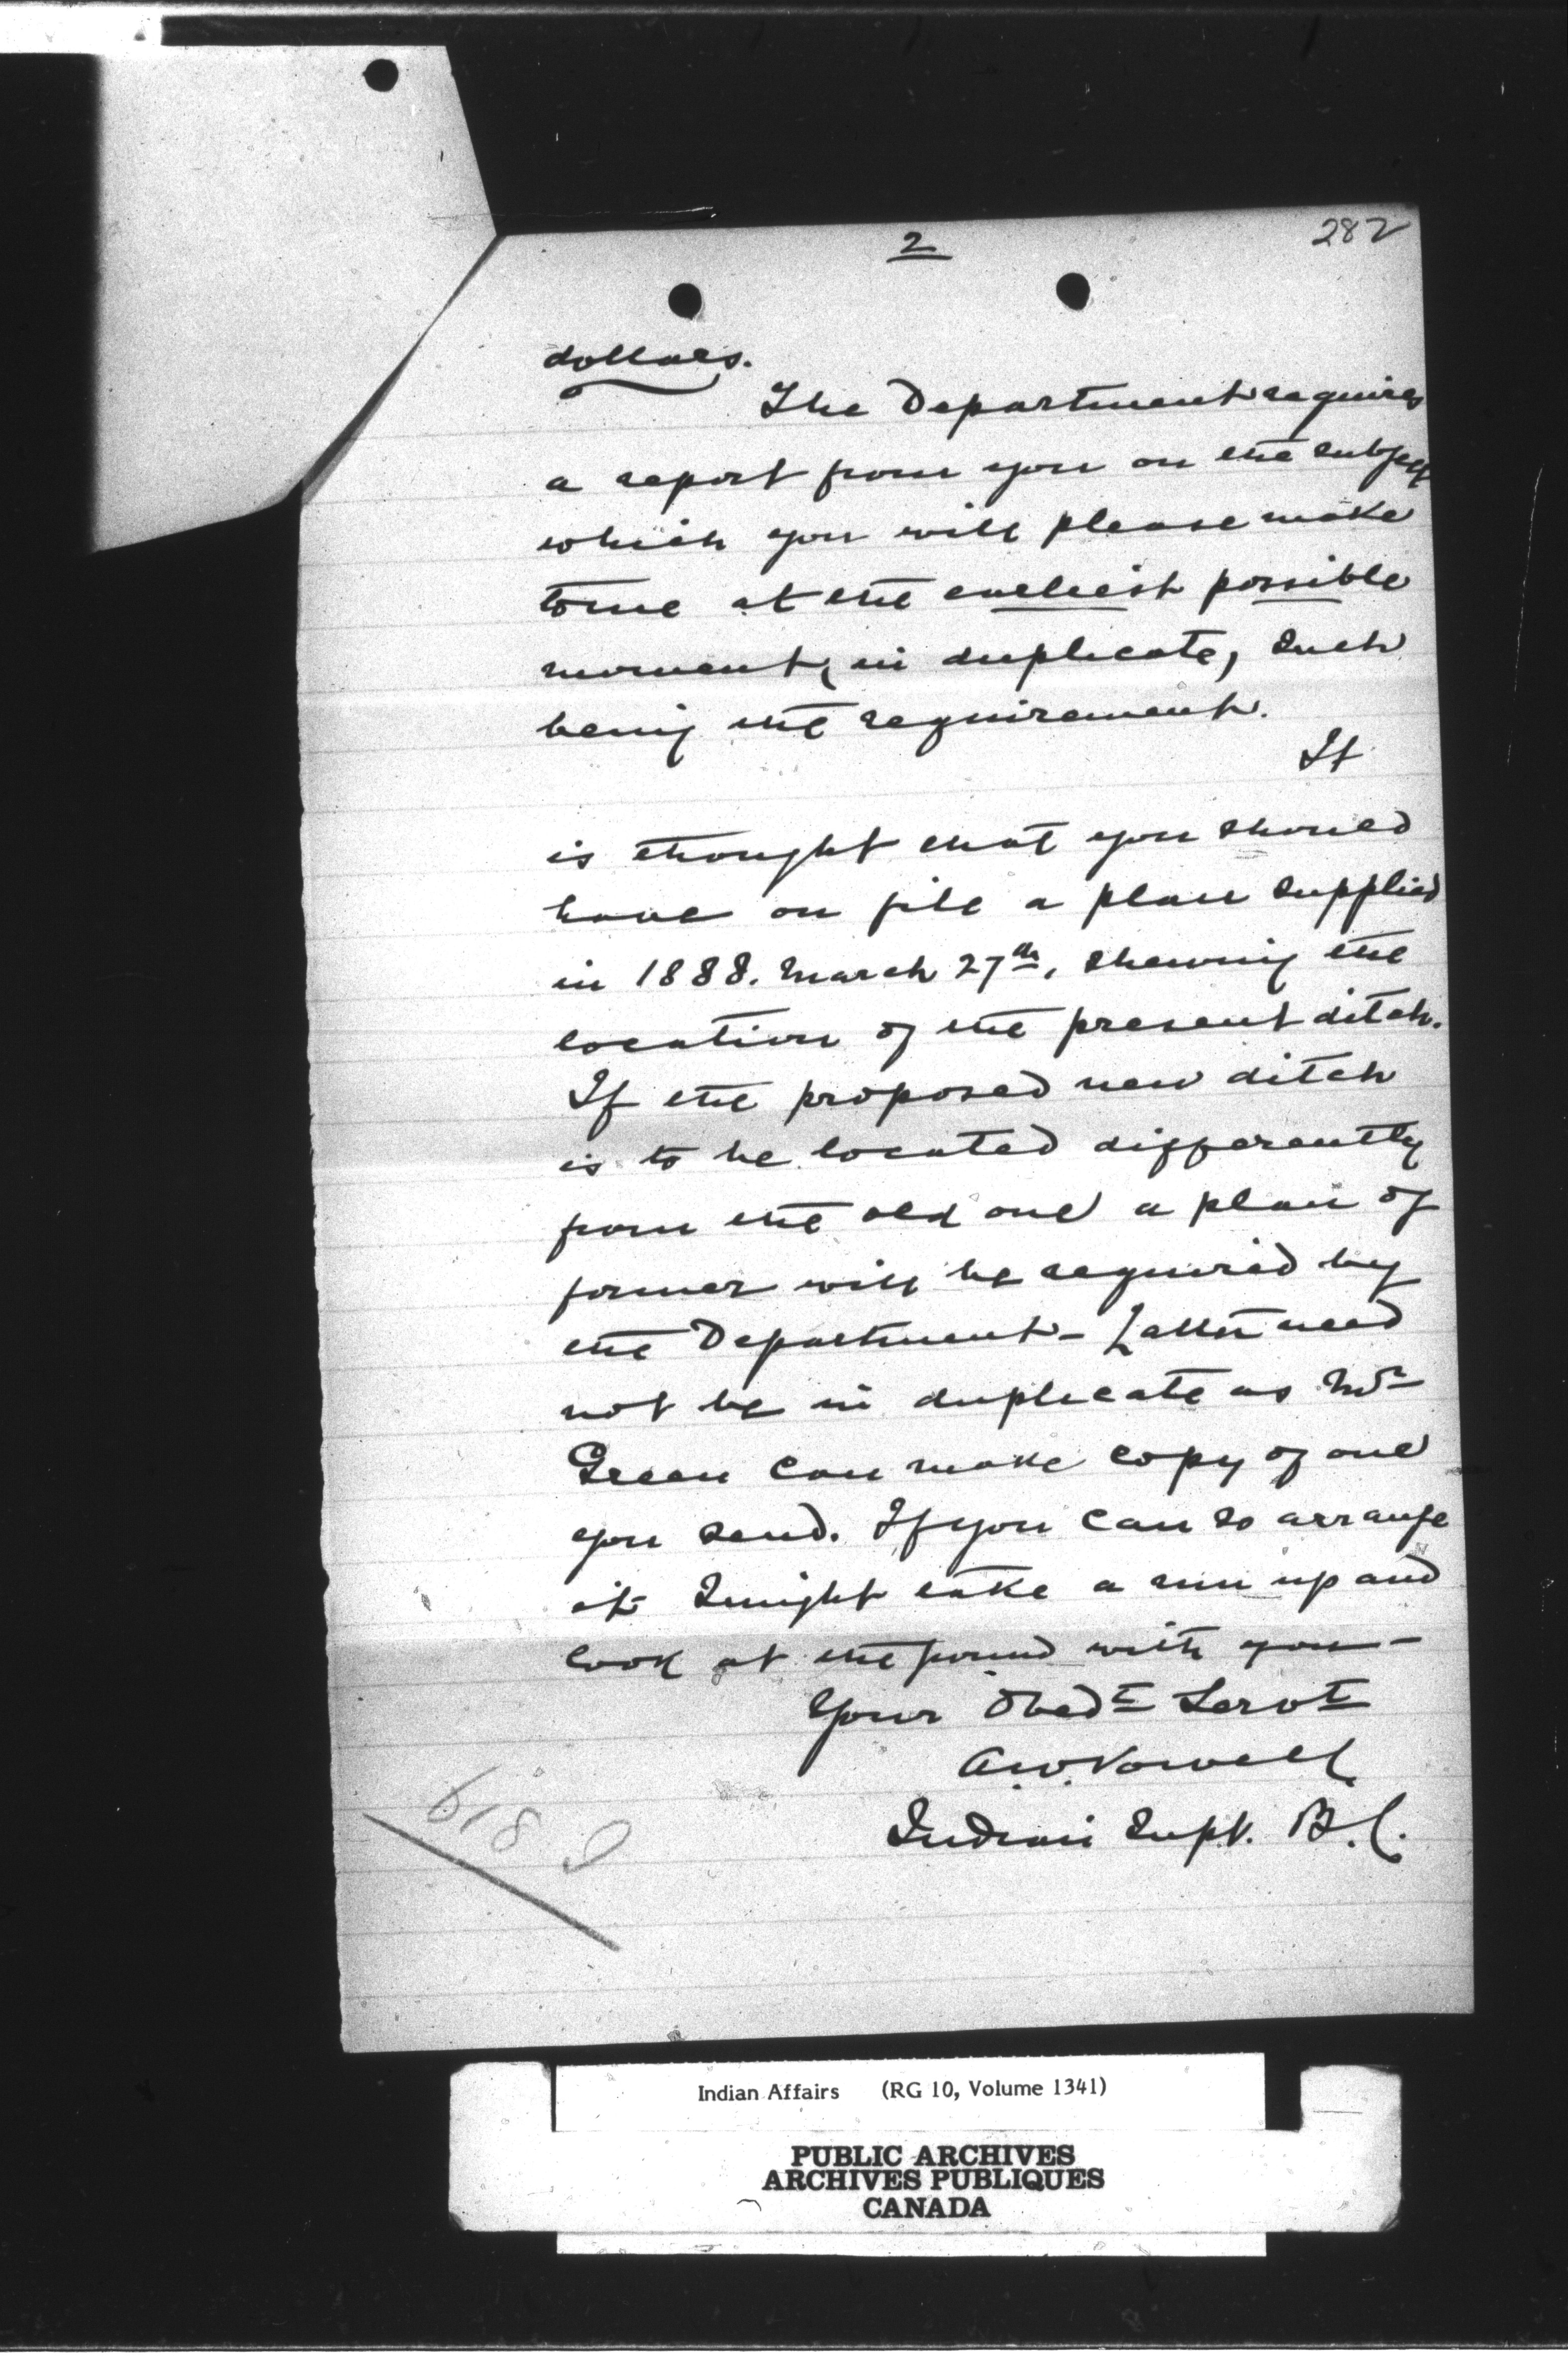 2
282
dollars.
The Department requires
a report from you on the subject
which you will please make
to me at the earliest possible
moment, in duplicate, such
being the requirement.
It
is thought that you should
have on file a plan supplied
in 1888. March 27th, shewing the
location of the present ditch.
If the proposed new ditch
is to be located differently
from the old one a plan of
former will be required by
the Department - Latter need
not be in duplicate as Mr
Green can make copy of one
you send. If you can so arrange
it I might take a run up and
look at the ground with you -
Your Obedt Servt
A.W. Vowell
Indian Supt. B.C.
618
Indian Affairs (RG 10, Volume 1341)
PUBLIC ARCHIVES
ARCHIVES PUBLIQUES
CANADA